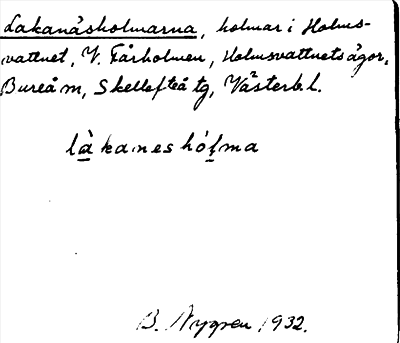 Lakanäsholmarna, holmar i Holms-
vattnet, V. Fårholmen, Holmsvattnets ägor,
Bureå m, Skellefteå tg, Västerb. l.
làkaneshólma
B. Nygren 1932.